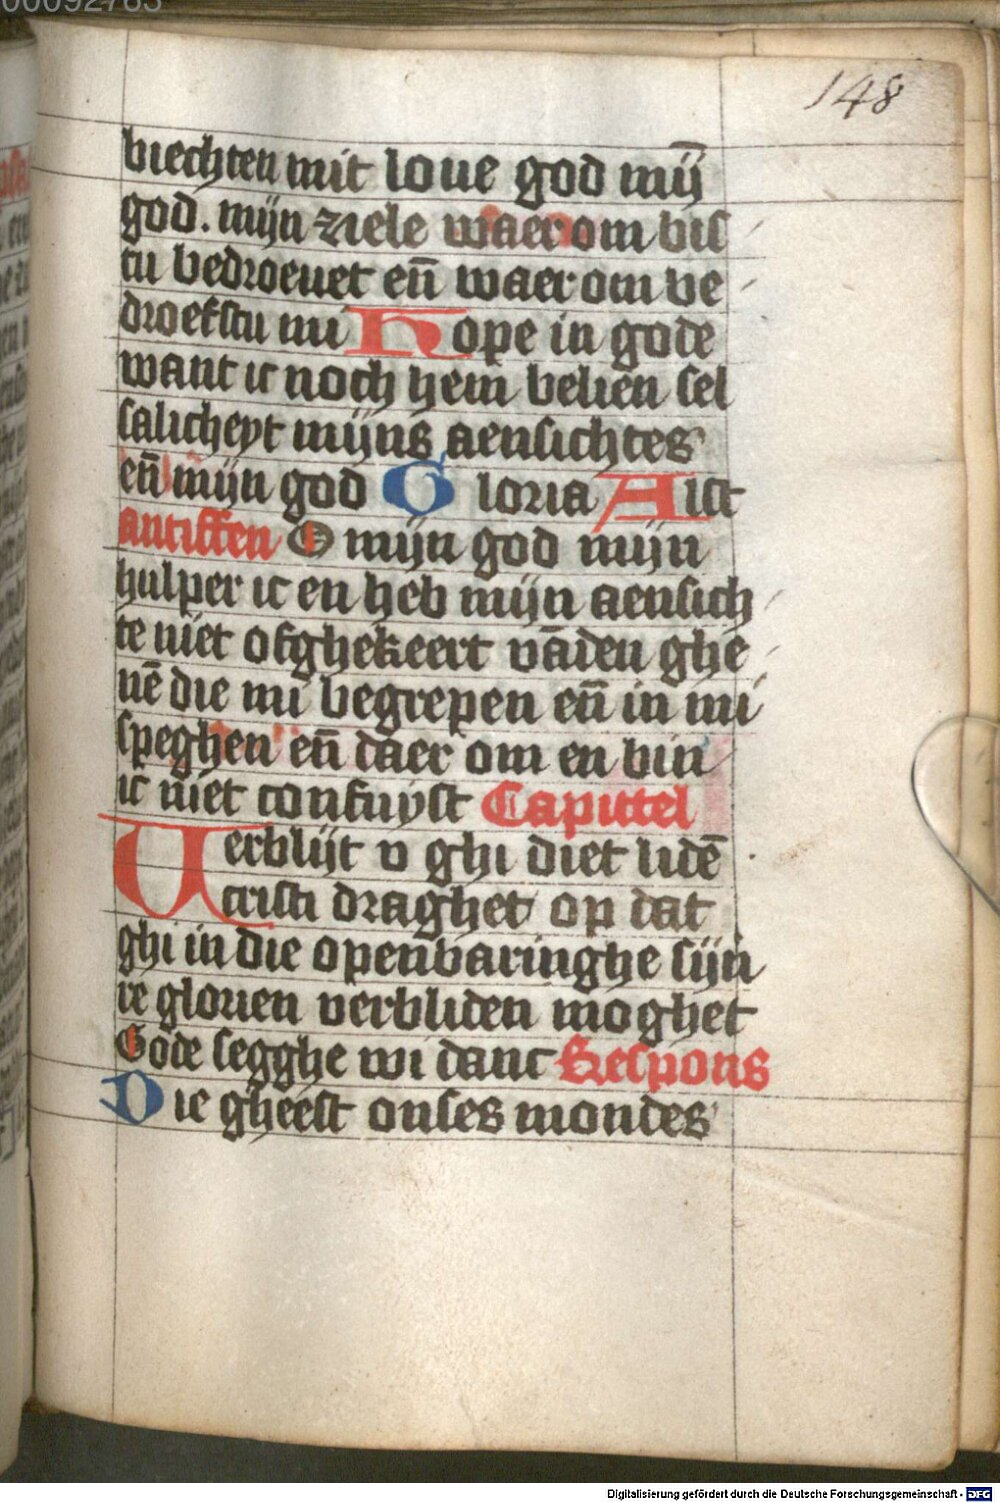 148
biechten mit loue god mij̄
god. mijn ziele waerom bis
tu bedroeuet en̄ waerom be
droefstu mi Hope in gode
want ic noch hem belien sel
salicheyt mijns aensichtes
en̄ mijn god Gloria Alst
antiffen O mijn god mijn
hulper ic en heb mijn aensich
te niet ofghekeert vāden ghe
nē die mi begrepen en̄ in mi
speghen en̄ daer om en bin
ic niet confuyst Capittel
Uerblijt v ghi diet lidē
cristi draghet op dat
ghi in die openbaringhe sijn
re glorien verbliden moghet
Gode segghe wi danc Respons
Die gheest onses mondes
Digitalisierung gefördert durch die Deutsche Forschungsgemeinschaft - DFG